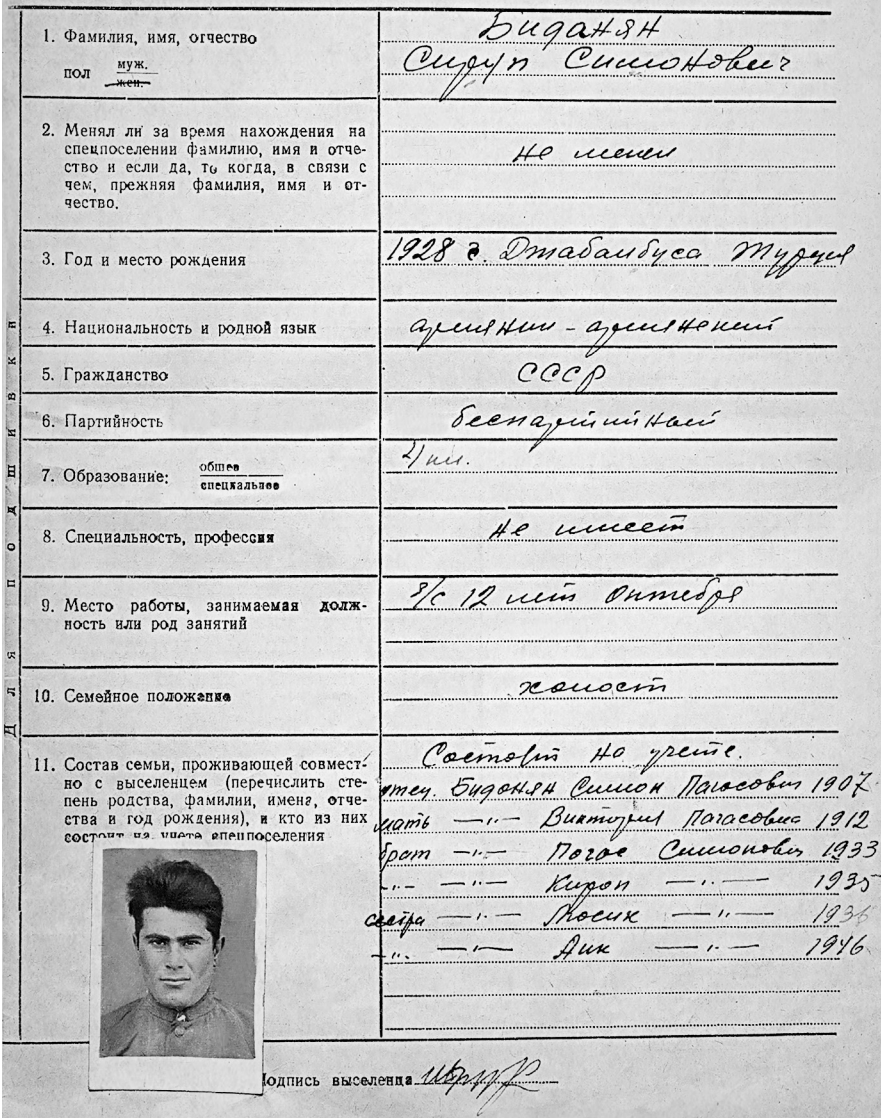 1. Фамилия, имя, отчество
пол муж.
жен.
Биданян
Сируп Симонович
2. Менял ли за время нахождения на
спецпоселении фамилию, имя и отче-
ство и если да, то когда, в связи с
чем, прежняя фамилия, имя и от-
чество.
не менял
3. Год и место рождения
1928 г. Джабанбуса Турция
4. Национальность и родной язык
армянин - армянский
5. Гражданство
СССР
6. Партийность
беспартийный
7. Образование: общее
специальное
кл.
8. Специальность, профессия
не имеет
9. Место работы, занимаемая долж-
ность или род занятий
з/с 12 лет Октября
10. Семейное положение
холост
11. Состав семьи, проживающей совмест-
но с выселенцем (перечислить сте-
пень родства, фамилии, имена, отче-
ства и год рождения), и кто из них
состоит на учете спецпоселения
Состоят на учете.
отец. Биданян Симон Пагасович 1907
мать —"— Виктория Пагасовна 1912
брат —"— Погос Симонович 1933
-"- —"— Кироп —"— 1935
сестра —"— Люсик —"— 1936
-"- —"— Аик —"— 1946
Подпись выселенца
Для подшивки